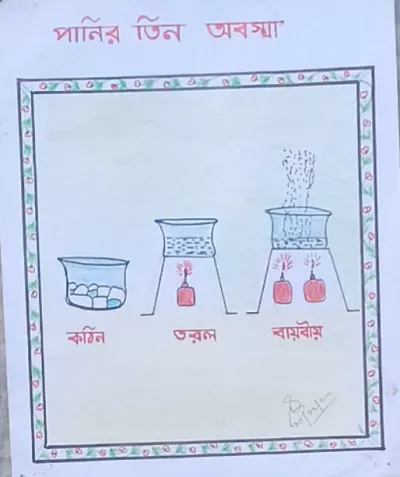 পানির তিন অবস্থা
কঠিন
তরল
বায়বীয়